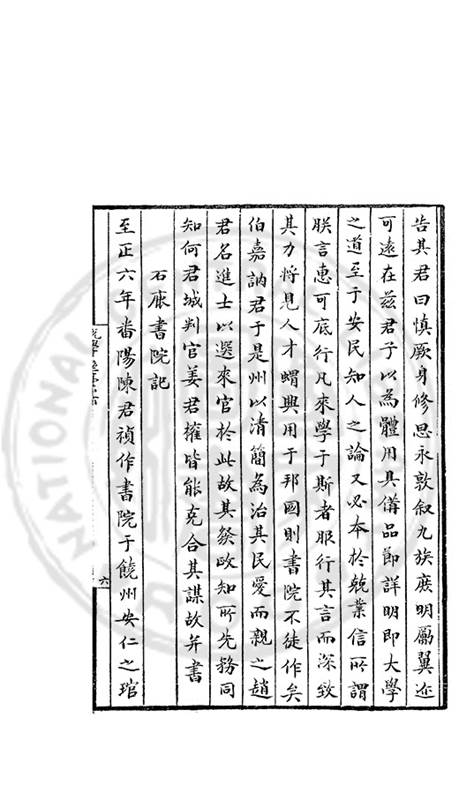 告其君曰慎厥身修思永敦叙九族庶明勵翼迩
可遠在兹君子以為體用具備品節詳明即大學
之道至于安民知人之論又必本於兢業信所謂
朕言惠可底行凡來學于斯者服行其言而深致
其力将見人才蝟興用于邦國則書院不徒作矣
伯嘉訥君于是州以清簡為治其民愛而親之趙
君名進士以選來官於此故其發政知所先務同
知何君城判官姜君㩁皆能克合其謀故并書
石庥書院記
至正六年番陽陳君禎作書院于饒州安仁之琯
六
NATIONAL